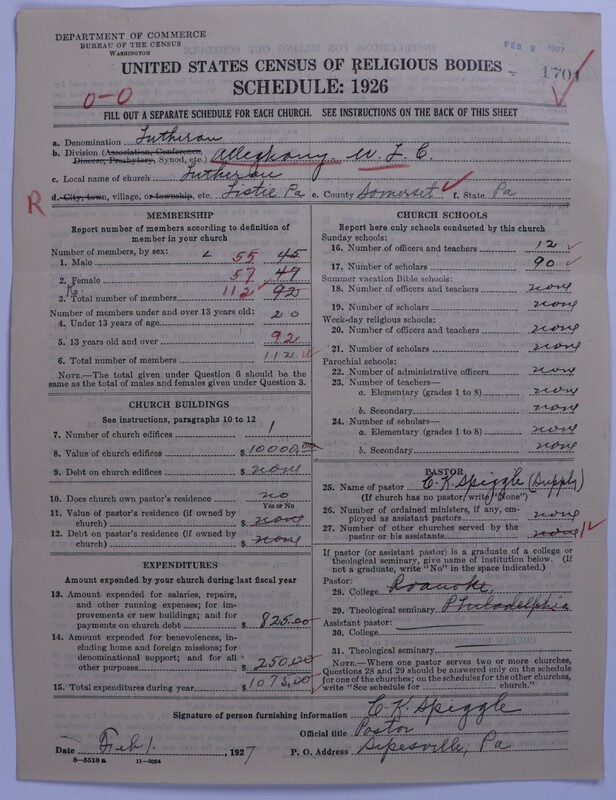 DEPARTMENT OF COMMERCE
BUREAU OF THE CENSUS
WASHINGTON
FEB 2 1927
UNITED STATES CENSUS OF RELIGIOUS BODIES
1701
SCHEDULE: 1926
0-0
FILL OUT A SEPARATE SCHEDULE FOR EACH CHURCH. SEE INSTRUCTIONS ON THE BACK OF THIS SHEET
a. Denomination Lutheran
b. Division (Association, Conference, Diocese, Presbytery, Synod, etc.) Alleghany U. L. C.
c. Local name of church Lutheran
R
d. City, town, village, or township, etc. Listie Pa e. County Somerset f. State Pa
MEMBERSHIP
Report number of members according to definition of member in your church
Number of members, by sex:
1. Male 55 45
2. Female 57 47
3. Total number of members 112 92
Number of members under and over 13 years old:
4. Under 13 years of age 20
5. 13 years old and over 92
6. Total number of members 112
NOTE.—The total given under Question 6 should be the same as the total of males and females given under Question 3.
CHURCH BUILDINGS
See instructions, paragraphs 10 to 12
7. Number of church edifices 1
8. Value of church edifices $10000.00
9. Debt on church edifices $ none
10. Does church own pastor's residence no
Yes or No
11. Value of pastor's residence (if owned by church) $ none
12. Debt on pastor's residence (if owned by church) $ none
EXPENDITURES
Amount expended by your church during last fiscal year
13. Amount expended for salaries, repairs, and other running expenses; for improvements or new buildings; and for payments on church debt $ 825.00
14. Amount expended for benevolences, including home and foreign missions; for denominational support; and for all other purposes $ 250.00
15. Total expenditures during year $ 1075.00
CHURCH SCHOOLS
Report here only schools conducted by this church
Sunday schools:
16. Number of officers and teachers 12
17. Number of scholars 90
Summer vacation Bible schools:
18. Number of officers and teachers none
19. Number of scholars none
Week-day religious schools:
20. Number of officers and teachers none
21. Number of scholars none
Parochial schools:
22. Number of administrative officers none
23. Number of teachers—
a. Elementary (grades 1 to 8) none
b. Secondary none
24. Number of scholars—
a. Elementary (grades 1 to 8) none
b. Secondary none
PASTOR
25. Name of pastor C. K. Spiggle (Supply)
(If church has no pastor, write "None")
26. Number of ordained ministers, if any, employed as assistant pastors none
27. Number of other churches served by the pastor or his assistants none 1
If pastor (or assistant pastor) is a graduate of a college or theological seminary, give name of institution below. (If not a graduate, write "No" in the space indicated.)
Pastor:
28. College Roanoke
29. Theological seminary Philadelphia
Assistant pastor:
30. College
31. Theological seminary
NOTE.—Where one pastor serves two or more churches, Questions 28 and 29 should be answered only on the schedule for one of the churches; on the schedules for the other churches, write "See schedule for ______ church."
Signature of person furnishing information C. K. Spiggle
Official title Pastor
Date Feb 1. 1927 P. O. Address Sipesville, Pa
8—5518 a 11—9054